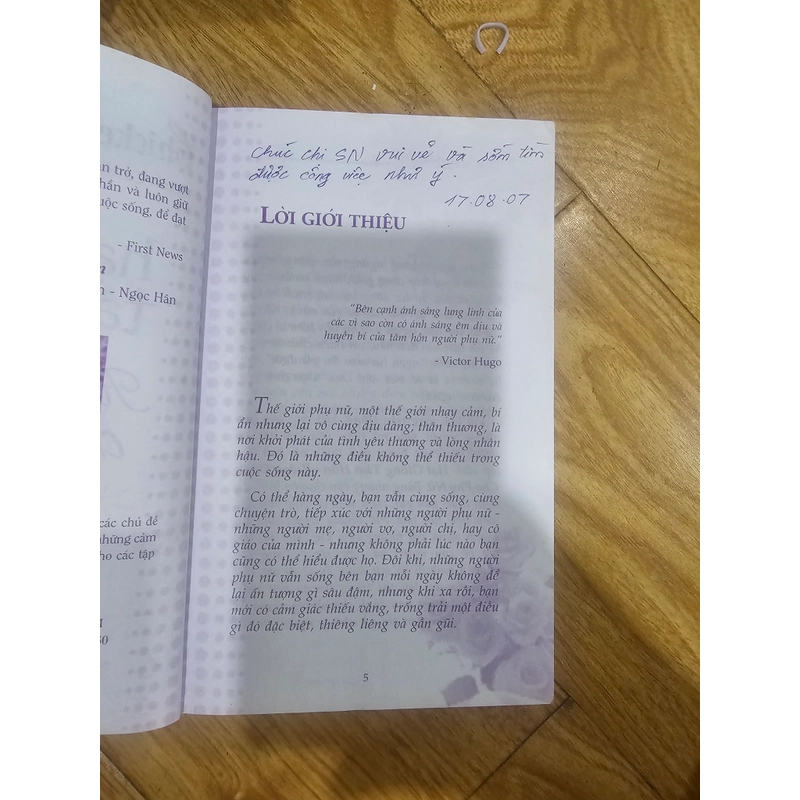 hicke
n trở, đang vượt
hần và luôn giữ
uộc sống, để đạt
- First News
n - Ngọc Hân
các chủ đề
những cảm
ho các tập
Chúc chị SN vui vẻ và sớm tìm
được công việc như ý.
17.08.07
LỜI GIỚI THIỆU
"Bên cạnh ánh sáng lung linh của
các vì sao còn có ánh sáng êm dịu và
huyền bí của tâm hồn người phụ nữ."
- Victor Hugo
Thế giới phụ nữ, một thế giới nhạy cảm, bí
ẩn nhưng lại vô cùng dịu dàng; thân thương, là
nơi khởi phát của tình yêu thương và lòng nhân
hậu. Đó là những điều không thể thiếu trong
cuộc sống này.
Có thể hàng ngày, bạn vẫn cùng sống, cùng
chuyện trò, tiếp xúc với những người phụ nữ -
những người mẹ, người vợ, người chị, hay cô
giáo của mình - nhưng không phải lúc nào bạn
cũng có thể hiểu được họ. Đôi khi, những người
phụ nữ vẫn sống bên bạn mỗi ngày không để
lại ấn tượng gì sâu đậm, nhưng khi xa rồi, bạn
mới có cảm giác thiếu vắng, trống trải một điều
gì đó đặc biệt, thiêng liêng và gần gũi.
5